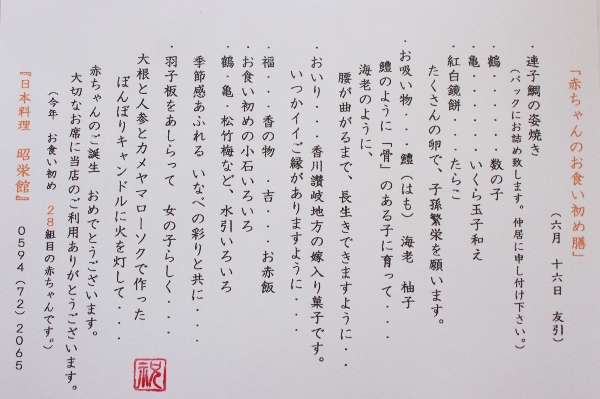 「赤ちゃんのお食い初め膳」
（六月　十六日　友引）
・連子鯛の姿焼き
（パックにお詰め致します。仲居に申し付け下さい。）
・鶴・・・・・数の子
・亀・・・・・いくら玉子和え
・紅白鏡餅・・・たらこ
たくさんの卵で、子孫繁栄を願います。
・お吸い物・・・鱧（はも）　海老　柚子
鱧のように「骨」のある子に育って・・・・
海老のように、
腰が曲がるまで、長生きできますように・・
・おいり・・・香川讃岐地方の嫁入り菓子です。
いつかイイご縁がありますように・・・・
・福・・・香の物　・吉・・・お赤飯
・お食い初めの小石いろいろ
・鶴・亀・松竹梅など、水引いろいろ
季節感あふれる　いなべの彩りと共に・・・
・羽子板をあしらって　女の子らしく・・・
大根と人参とカメヤマローソクで作った
ぼんぼりキャンドルに火を灯して・・・
祝
赤ちゃんのご誕生　おめでとうございます。
大切なお席に当店のご利用ありがとうございます。
（今年　お食い初め　28組目の赤ちゃんです。）
『日本料理　昭栄館』　0594（72）2065